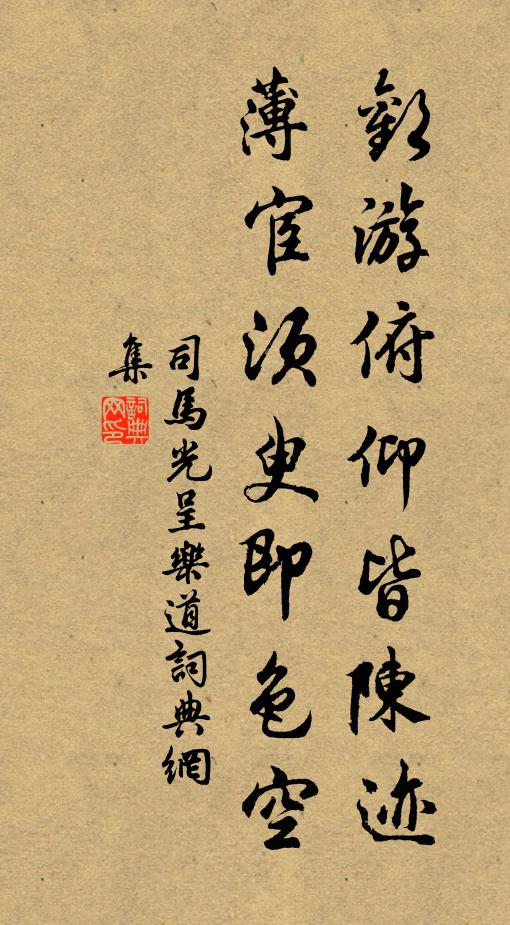 歡游俯仰皆陳迹
薄宦須臾即色空
司馬光呈樂道詞典網
集
詞典
网印